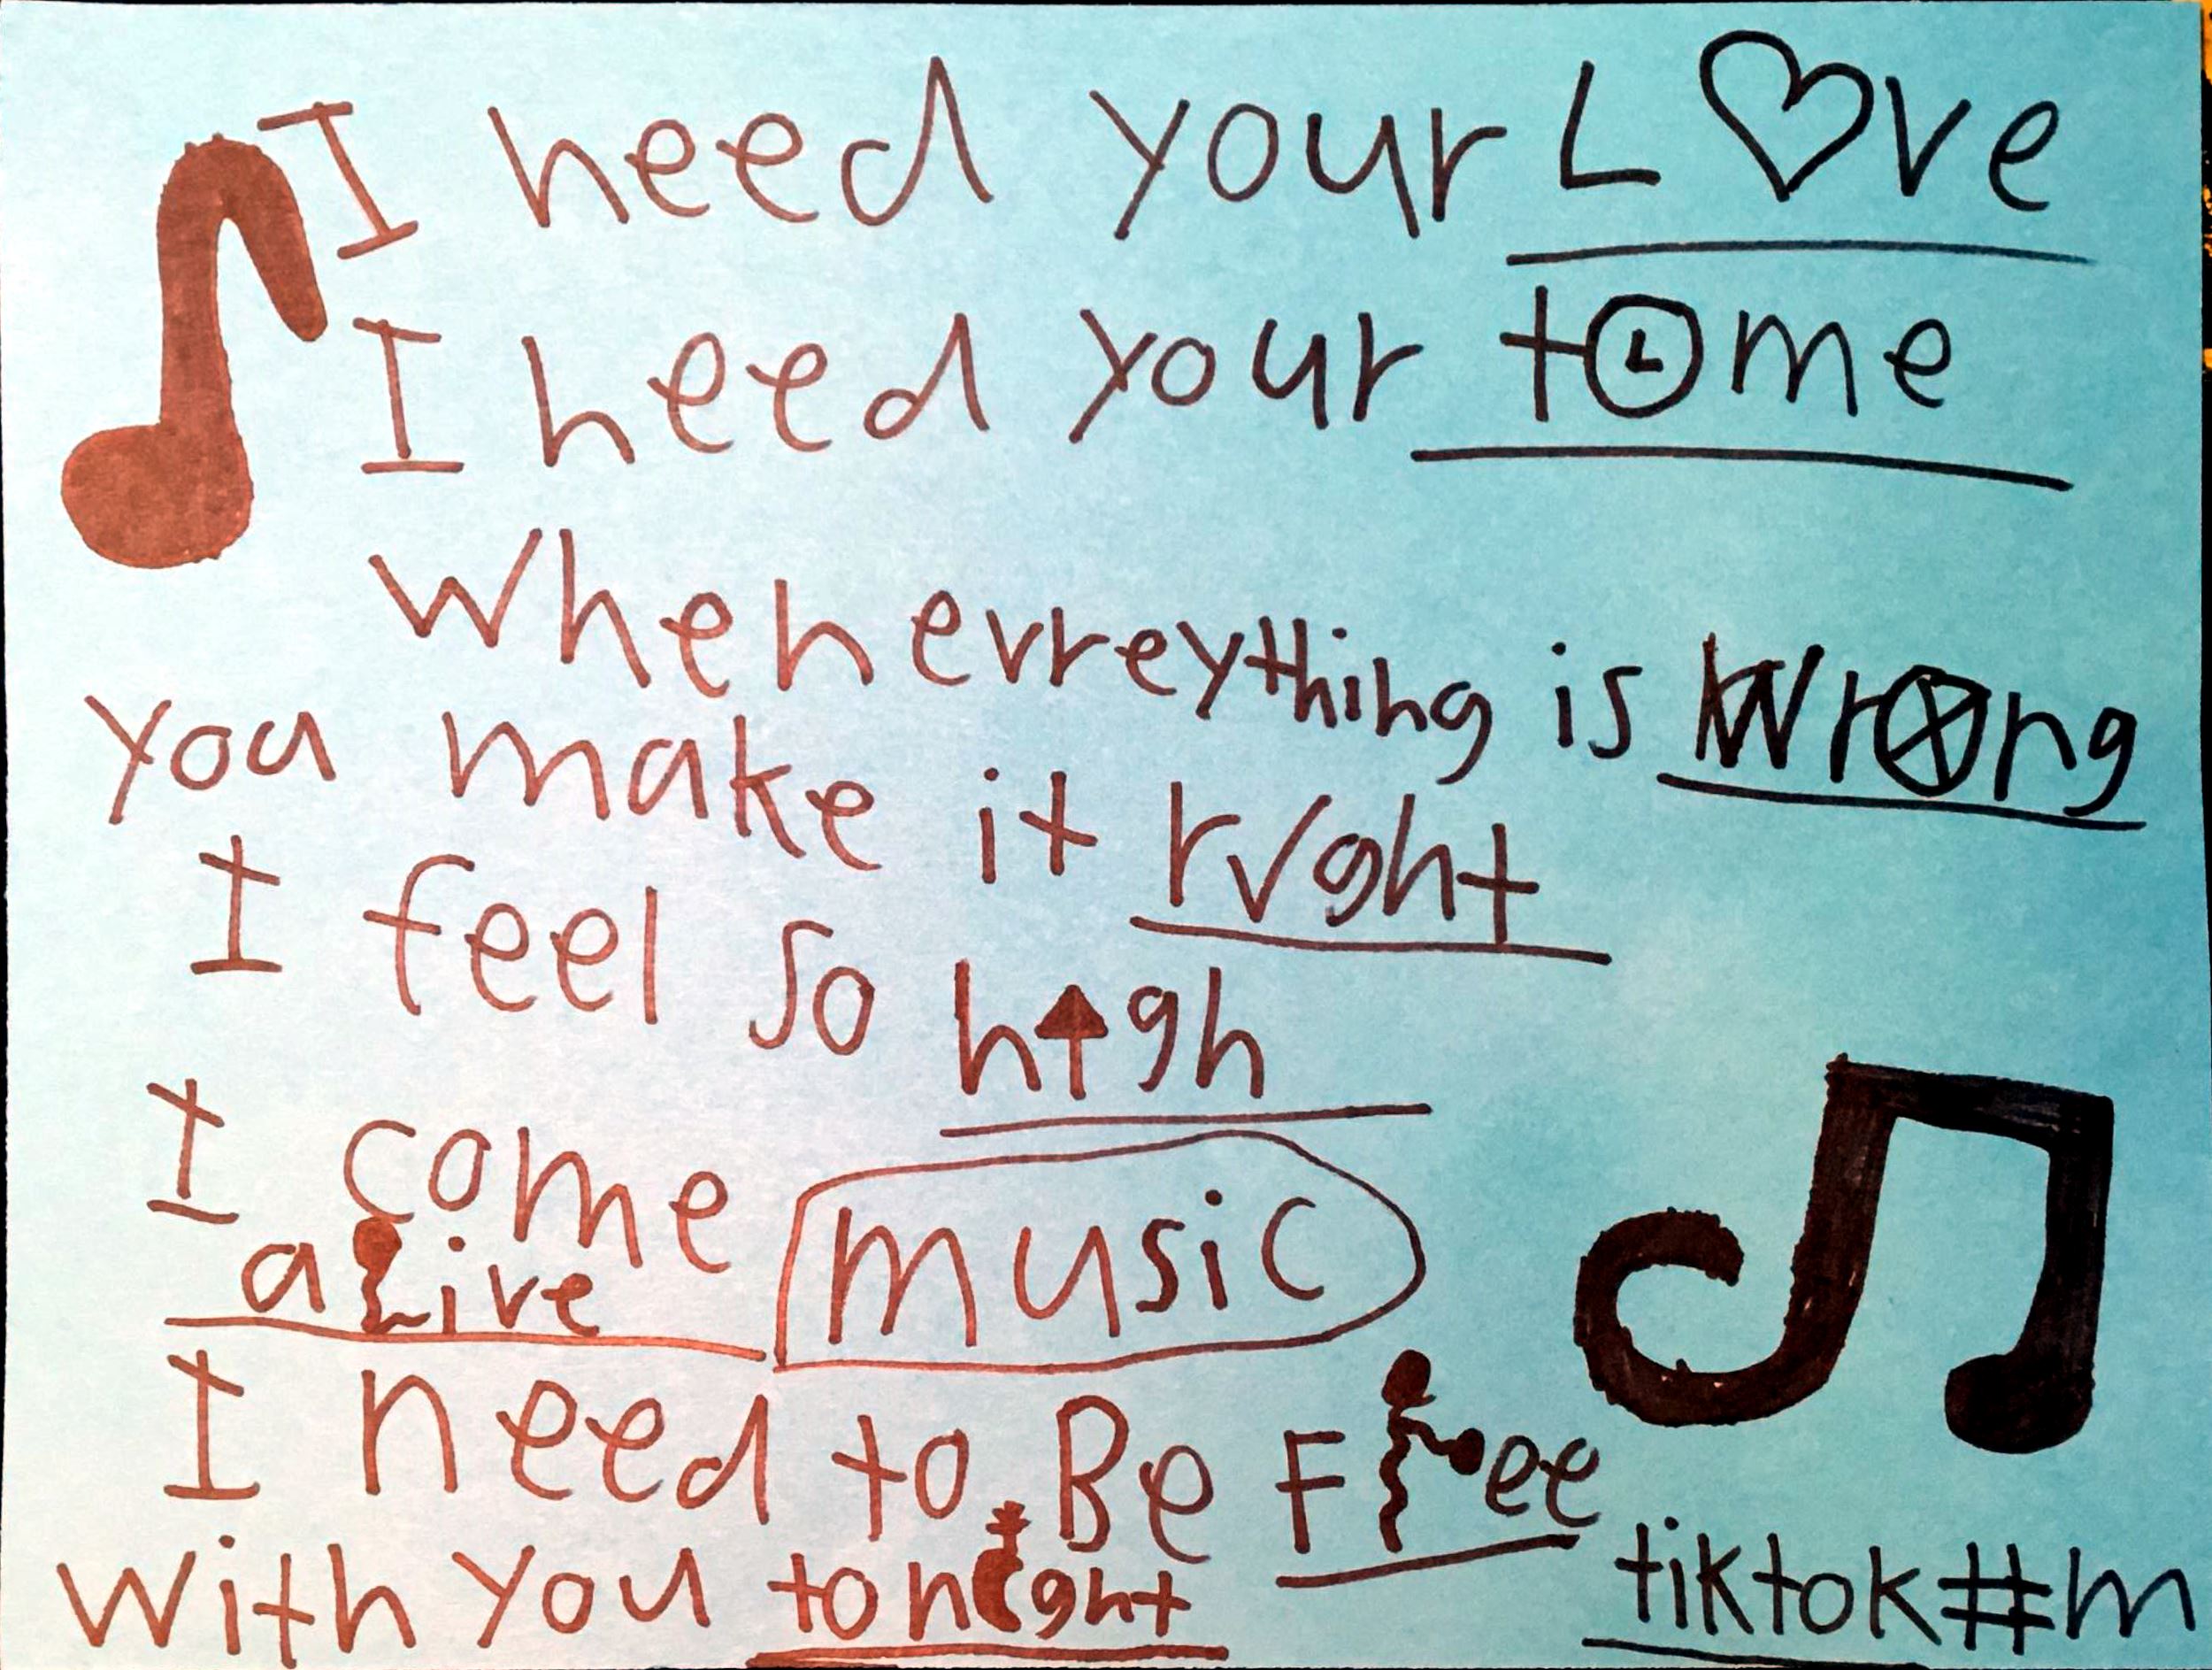 I need your L♡ve
I need your t🕒me
when evrreything is Wrong
you make it r✓ght
I feel so h↑gh
I come
alive
music
I need to Be Free
with you tonight
tiktok#m